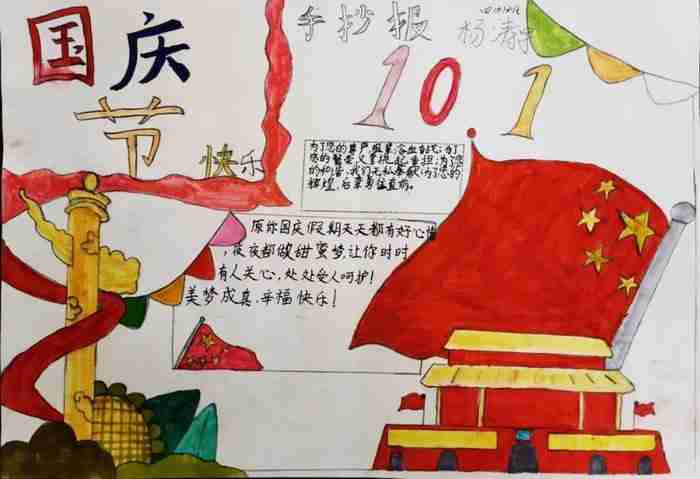 国庆
节
快乐
手抄报
杨涛
10 1
为了您的尊严祖辈浴血奋战;为了
您的繁荣父辈挑起重担;为了您
的和谐,我们无私奉献;为了您的
辉煌,后辈勇往直前。
愿你国庆假期天天都有好心情
,夜夜都做甜蜜梦,让你时时
有人关心,处处受人呵护!
美梦成真,幸福快乐!